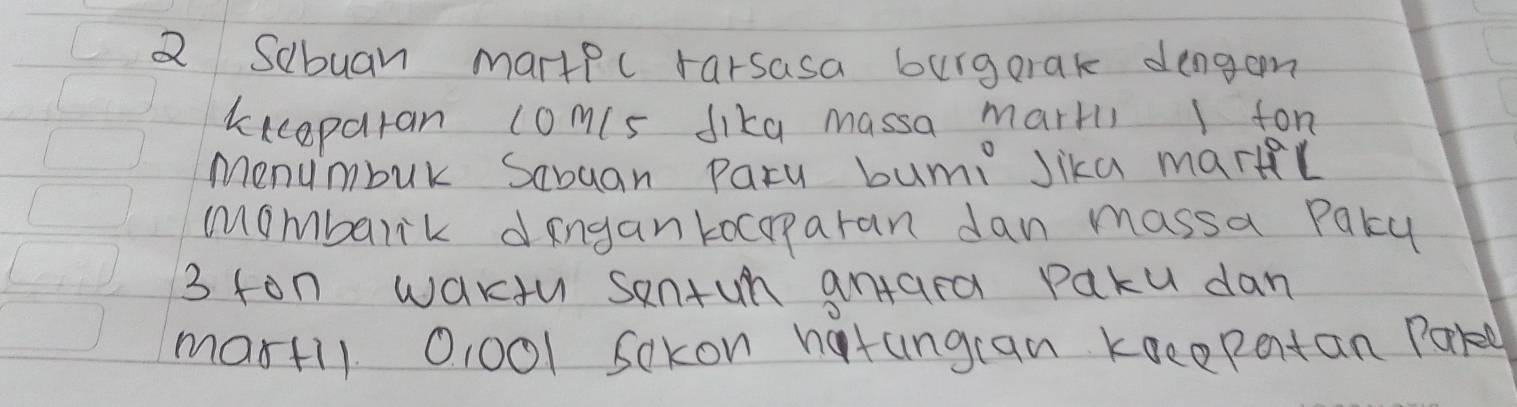 2 Sebuah martil raksasa bergerak dengan
kecepatan 10 m/s Jika massa martil 1 ton
menumbuk Sebuah Paku bumi Jika martil
membalik dengan kecepatan dan massa Paku
3 ton waktu Sentuh antara Paku dan
martil 0,001 Sekon hitunglah kecepatan Paku